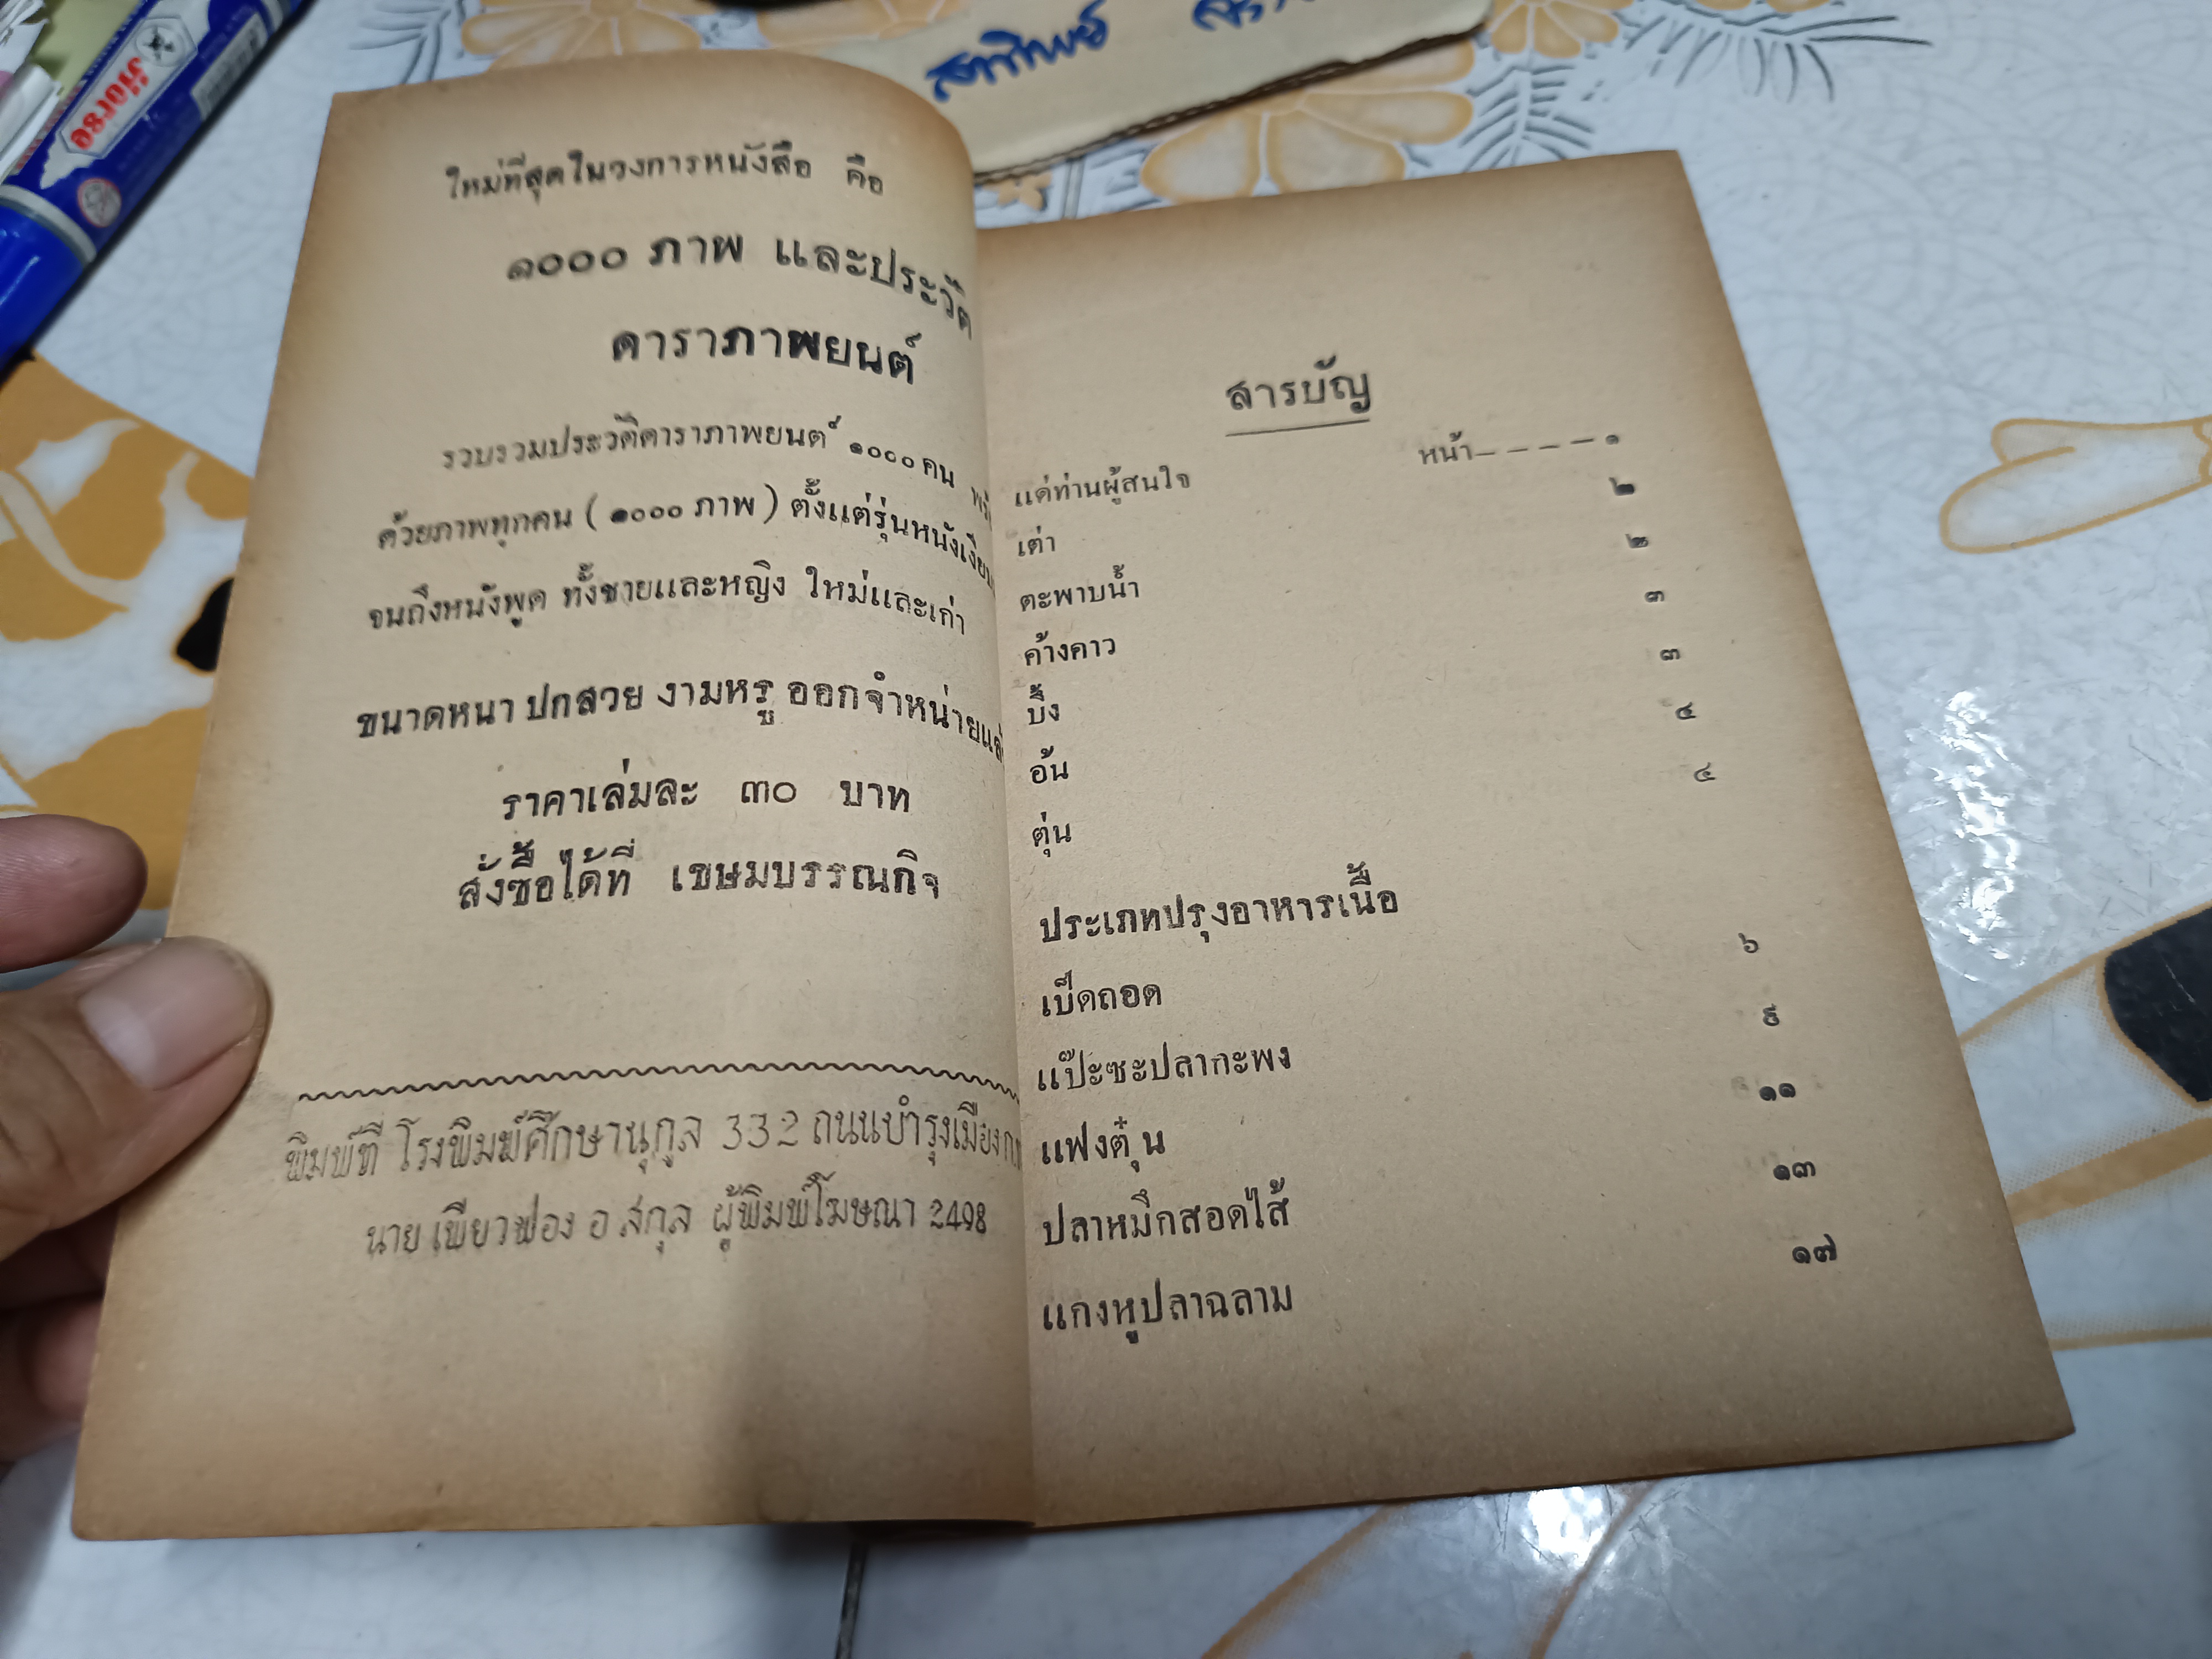 สาทิพย์
Horse
ตราม้า
ใหม่ที่สุดในวงการหนังสือ คือ
๑๐๐๐ ภาพ และประวัติ
ดาราภาพยนต์
รวบรวมประวัติดาราภาพยนต์ ๑๐๐๐ คน
ด้วยภาพทุกคน ( ๑๐๐๐ ภาพ ) ตั้งแต่รุ่นหนังเงียบ
จนถึงหนังพูด ทั้งชายและหญิง ใหม่และเก่า
ขนาดหนา ปกสวย งามหรู ออกจำหน่ายแล้
ราคาเล่มละ ๓๐ บาท
สั่งซื้อได้ที่ เขษมบรรณกิจ
พิมพ์ที่ โรงพิมพ์ศึกษานุกูล 332 ถนนบำรุงเมือง
นาย เพียวฟอง อ สกุล ผู้พิมพ์โฆษณา 2498
สารบัญ
แด่ท่านผู้สนใจ หน้า– – – – –๑
เต่า ๒
ตะพาบน้ำ ๒
ค้างคาว ๓
บึ้ง ๓
อ้น ๔
ตุ่น ๔
ประเภทปรุงอาหารเนื้อ
เป็ดถอด ๖
แป๊ะซะปลากะพง ๘
แฟงตุ๋น ๑๑
ปลาหมึกสอดไส้ ๑๓
แกงหูปลาฉลาม ๑๗